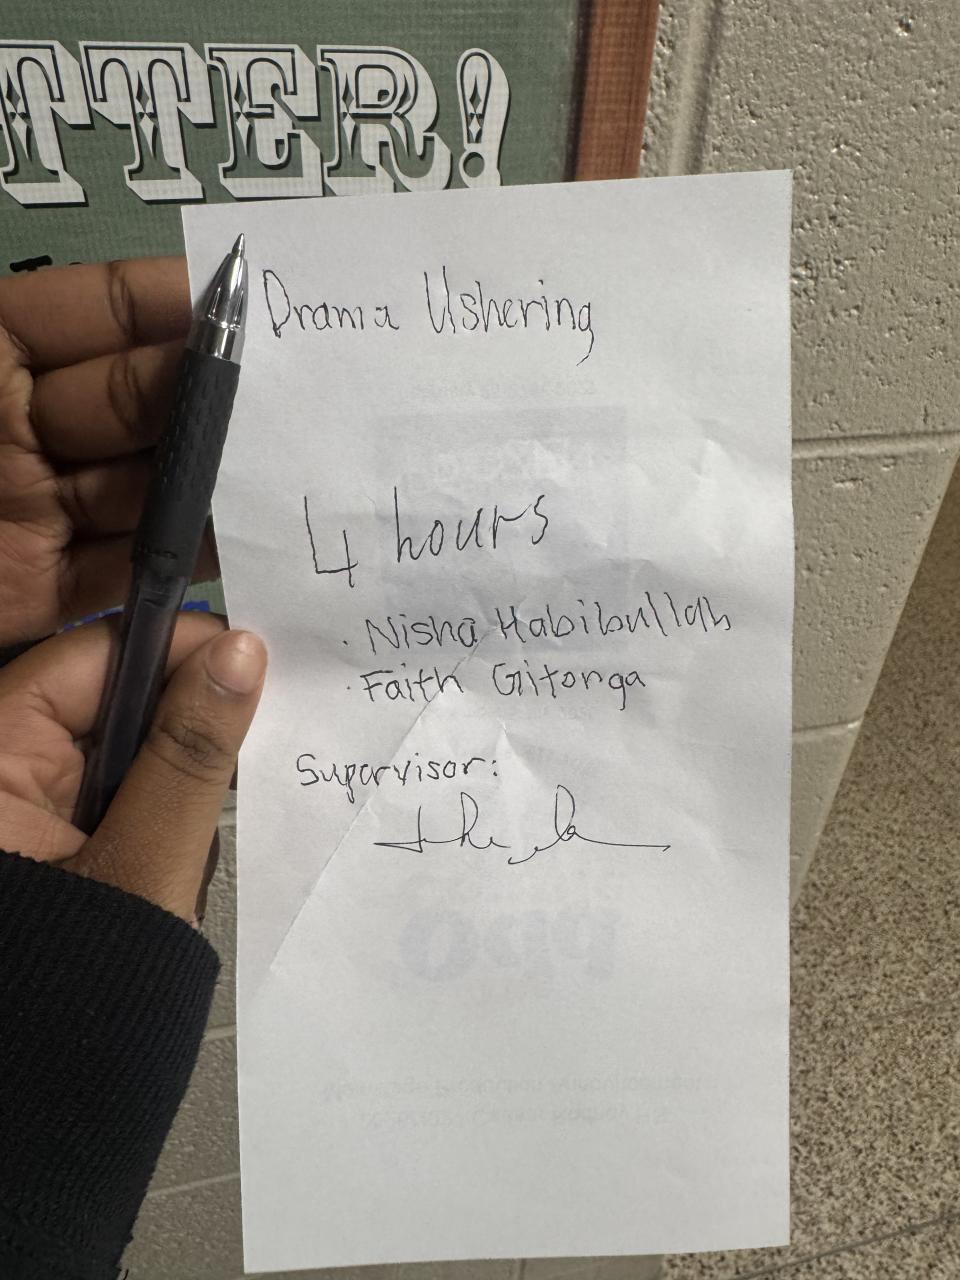 TTER!
Drama Ushering
4 hours
· Nisha Habibullah
· Faith Gitonga
Supervisor: